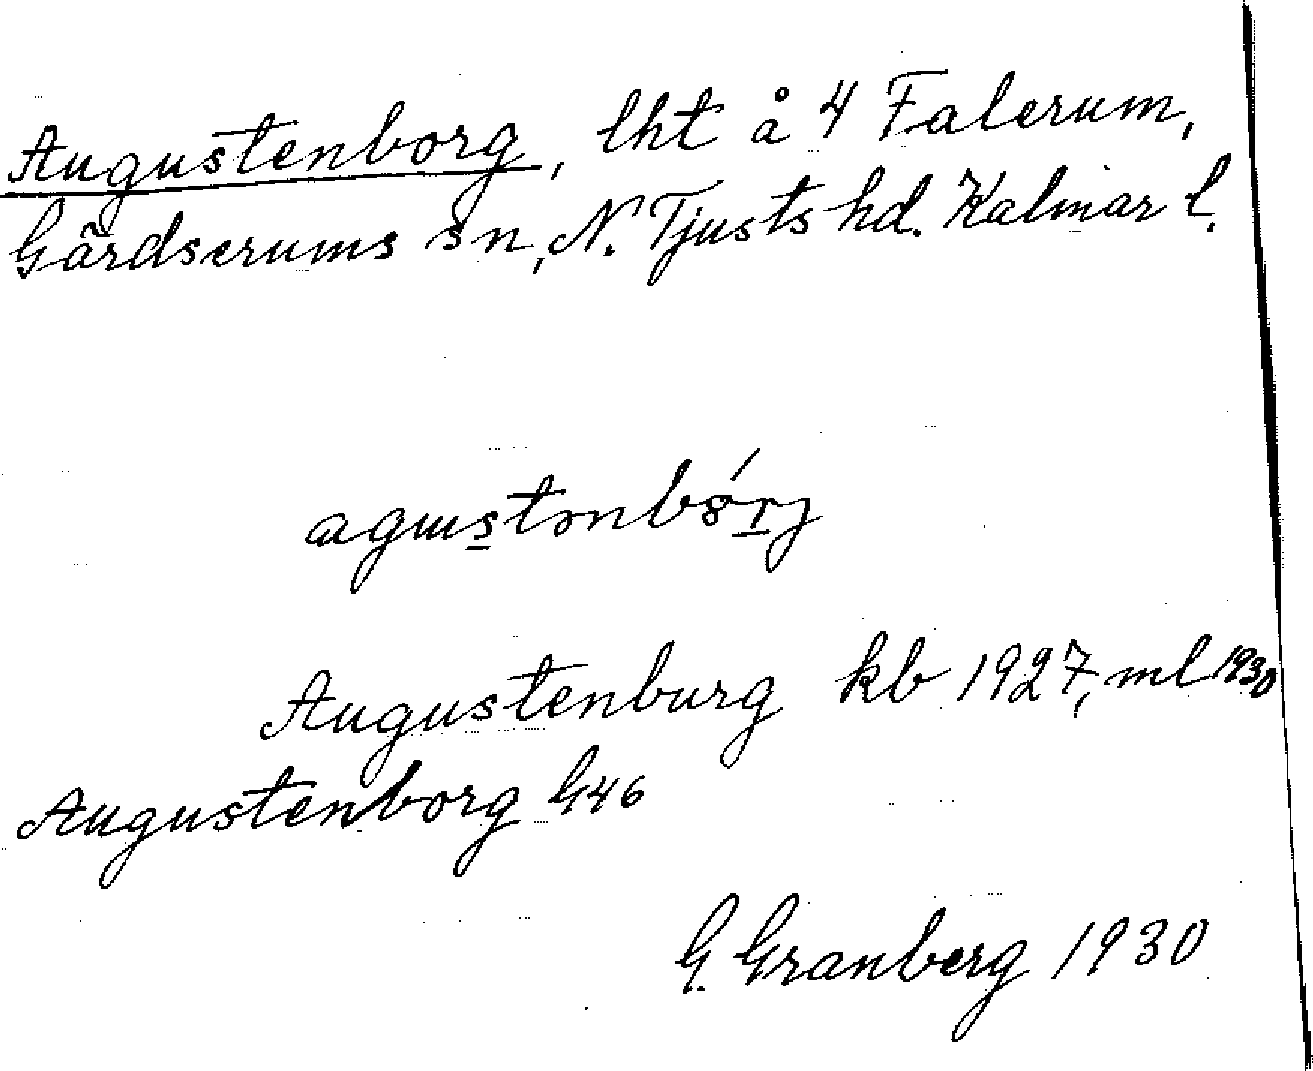 Augustenborg, lht å 4 Falerum,
Gärdserums sn, N. Tjusts hd. Kalmar l.
Augustenburg kb 1927, ml 1930
Augustenborg G46
G. Granberg 1930